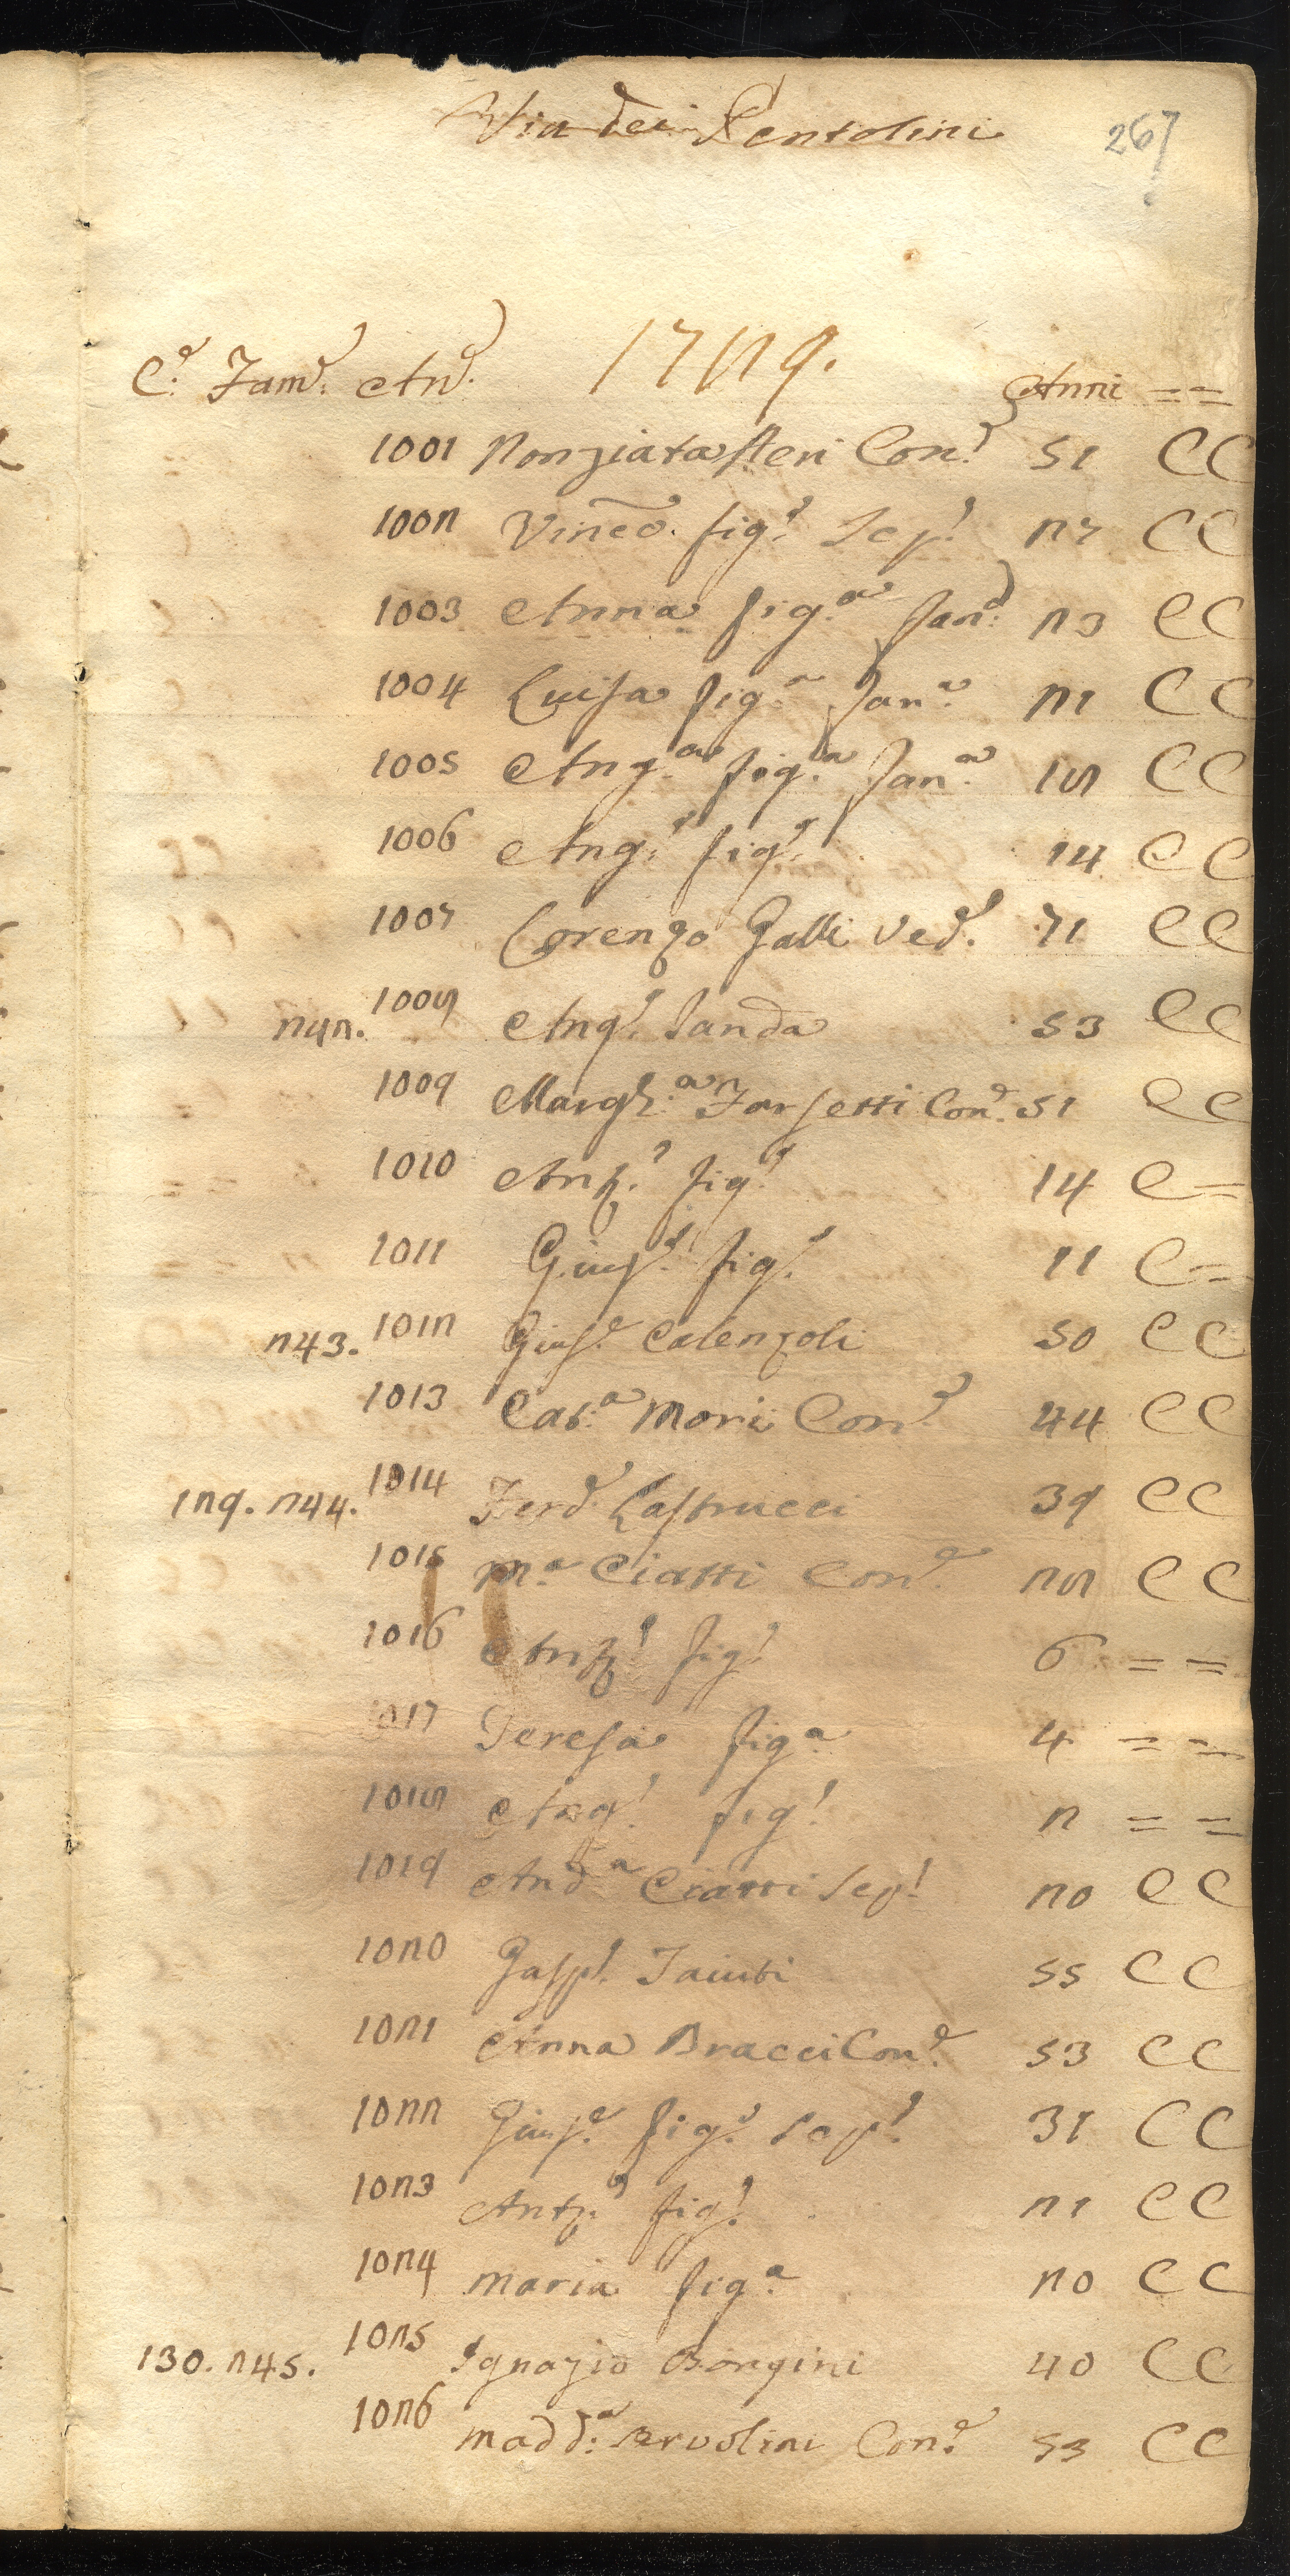 Via dei Pentolini 267
C.e Fam.e An.e 1729. Anni = =
1001 Nonziata Neri Con.e 51 C C
1002 Vinco. fig.o Sep.o 27 C C
1003 Anna fig.a Fan.a 23 C C
1004 Luisa fig.a Fan.a 21 C C
1005 Ang.a fig.a Fan.a 18 C C
1006 Ang.o fig.o 14 C C
1007 Lorenzo Galli Ved.o 71 C C
242. 1008 Ang.o Landa 53 C C
1009 Margh.a Forsetti Con.e 51 C C
1010 Ant.o fig.o 14 C =
1011 Gius.e fig.o 11 C =
243. 1012 Gius.e Calenzoli 50 C C
1013 Cat.a Mori Con.e 44 C C
129. 244. 1014 Ferd.o Lastrucci 39 C C
1015 M.a Ciatti Con.e 28 C C
1016 Ant.o fig.o 6 = =
1017 Teresa fig.a 4 = =
1018 Ang.o fig.o 2 = =
1019 And.a Ciatti Sep.o 20 C C
1020 Gasp.o Taiuti 55 C C
1021 Anna Bracci Con.e 53 C C
1022 Gius.e fig.o Sep.o 31 C C
1023 Ant.o fig.o 21 C C
1024 Maria fig.a 20 C C
130. 245. 1025 Ignazio Borgini 40 C C
1026 Madd.a Servolini Con.e 53 C C